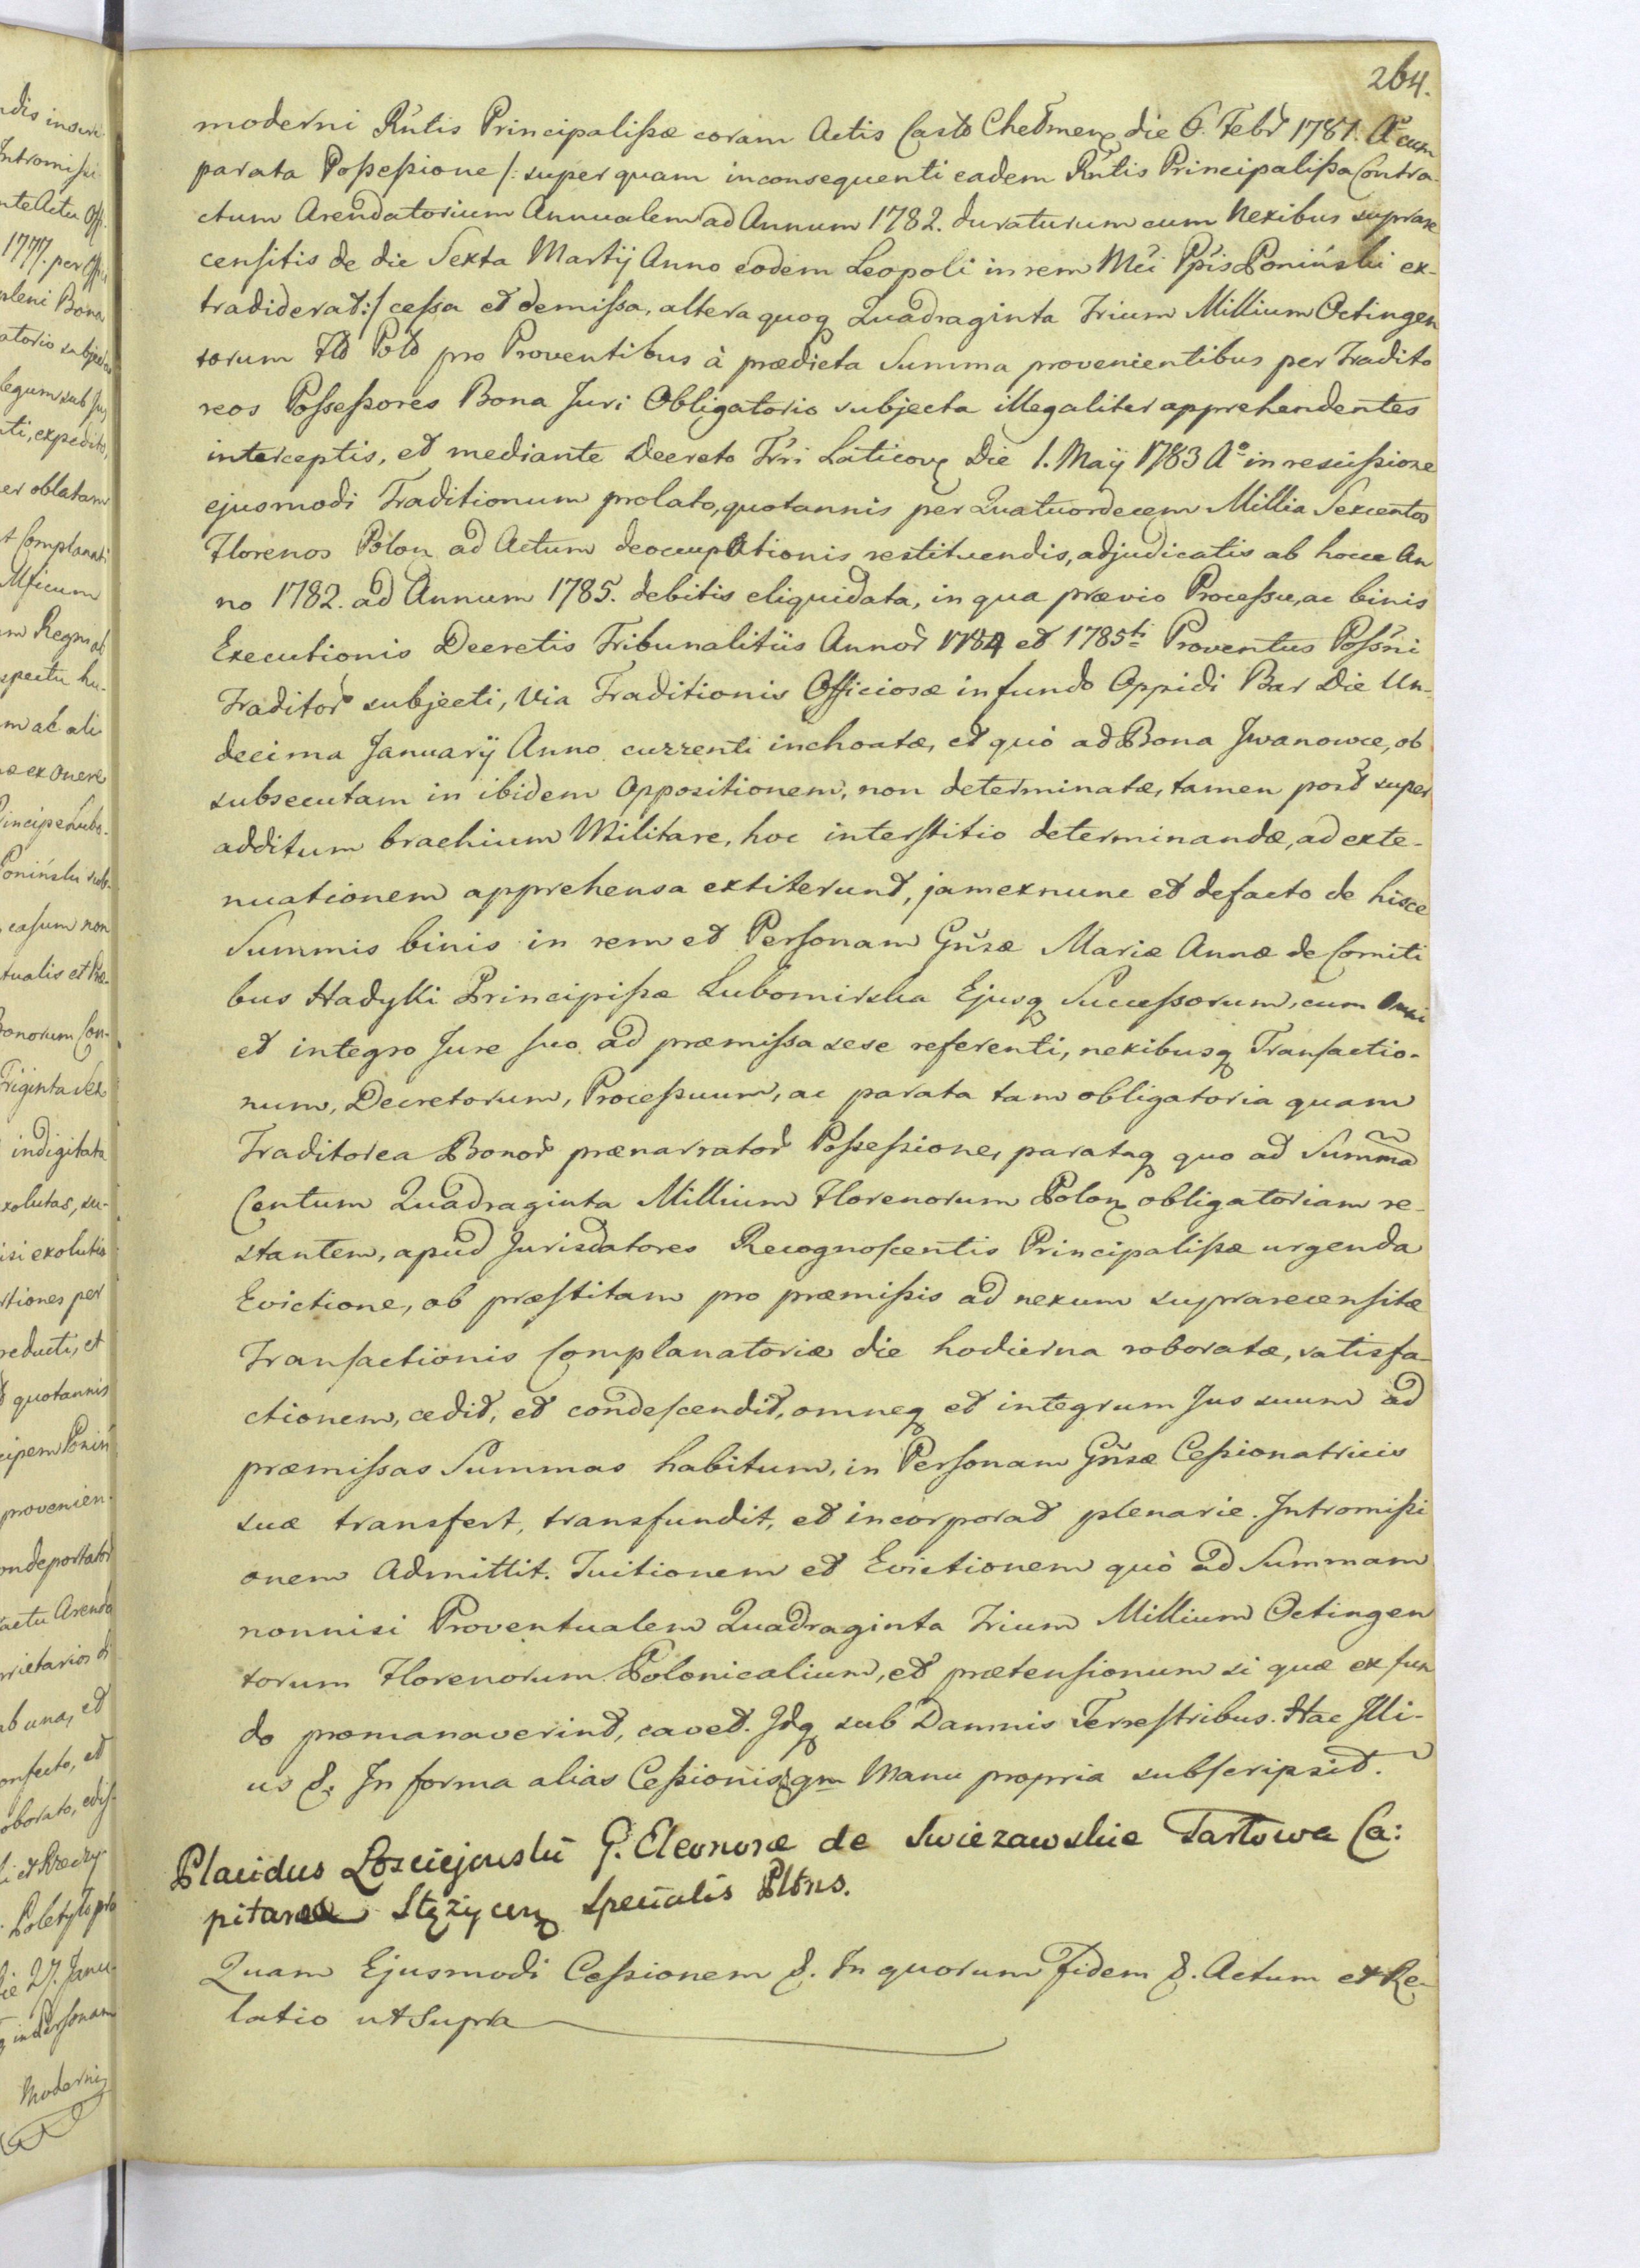 264.
moderni Rńtis Principalißæ coram Actis Castr Chełmen die 6. Febr 1781. Ao cum
parata Poßeßione /: super quam inconsequenti eadem Rńtis Principalißa Contra-
ctum Arendatorium Annualem ad Annum 1782. duraturum cum Nexibus suprare
censitis de die Sexta Martij Anno eodem Leopoli in rem Mći Ppis Poniński ex-
tradiderat :/ ceßa et demißa, altera quoq Quadraginta Trium Millium Octingen
torum Fld Pold pro Proventibus à prædicta Summa provenientibus per Tradito
reos Poßeßores Bona Juri Obligatorio subjecta illegaliter apprehendentes
interceptis, et mediante Decreto Trri Laticov Die 1. Maij 1783 Ao in resciißione
ejusmodi Traditionum prolato, quotannis per Quatuordecem Millia Sexcentos
Florenos Polon ad Actum deoccupationis restituendis, adjudicatis ab hocce An
no 1782. ad Annum 1785. debitis eliquidata, in qua prævio Proceßu, ac binis
Executionis Decretis Tribunalitiis Annor 1784 et 1785ti Proventus Poßńi
Traditor subjecti, via Traditionis Officiosæ in fundo Oppidi Bar Die Un-
decima Januarij Anno currenti inchoatæ, et quò ad Bona Jwanowce, ob
subsecutam in ibidem Oppositionem, non determinatæ, tamen post super
additum brachium Militare, hoc interstitio determinandæ, ad exte-
nuationem apprehensa extiterunt, jamexnunc et defacto de hisce
Summis binis in rem et Personam Gńsæ Mariæ Annæ de Comiti
bus Hadyki Principißæ Lubomirska Ejusq Succeßorum, cum Omni
et integro Jure suo ad præmißa sese referenti, nexibusq Transactio-
num, Decretorum, Proceßuum, ac parata tam obligatoria quam
Traditorea Bonor prænarrator Poßeßione, parataq quo ad Summã
Centum Quadraginta Millium Florenorum Polon obligatoriam re-
stantem, apud Jurisdatores Recognoscentis Principalißæ urgenda
Evictione, ob præstitam pro præmißis ad nexum suprarecensitæ
Transactionis Complanatoriæ die hodierna roboratæ, satisfa-
ctionem, cedit, et condescendit, omneq et integrum Jus suum ad
præmißas Summas habitum, in Personam Gńsæ Ceßionatricis
suæ transfert, transfundit, et incorporat plenarie. Intromißi
onem Admittit. Tuitionem et Evictionem quò ad Summam
nonnisi Proventualem Quadraginta Trium Millium Octingen
torum Florenorum Polonicalium, et prætensionum si quæ ex fun
do promanaverint, cavet. Idq sub Damnis Terrestribus. Hac Illi-
us &. In forma alias Ceßionis qm Manu propria subscripsit.
Placidus Łosciejowski G. Eleonoræ de Swiezawskie Tarłowa Ca:
pitanea Stężycen specialis Pltns.
Quam Ejusmodi Ceßionem &. In quorum Fidem &. Actum et Re-
latio ut Supra